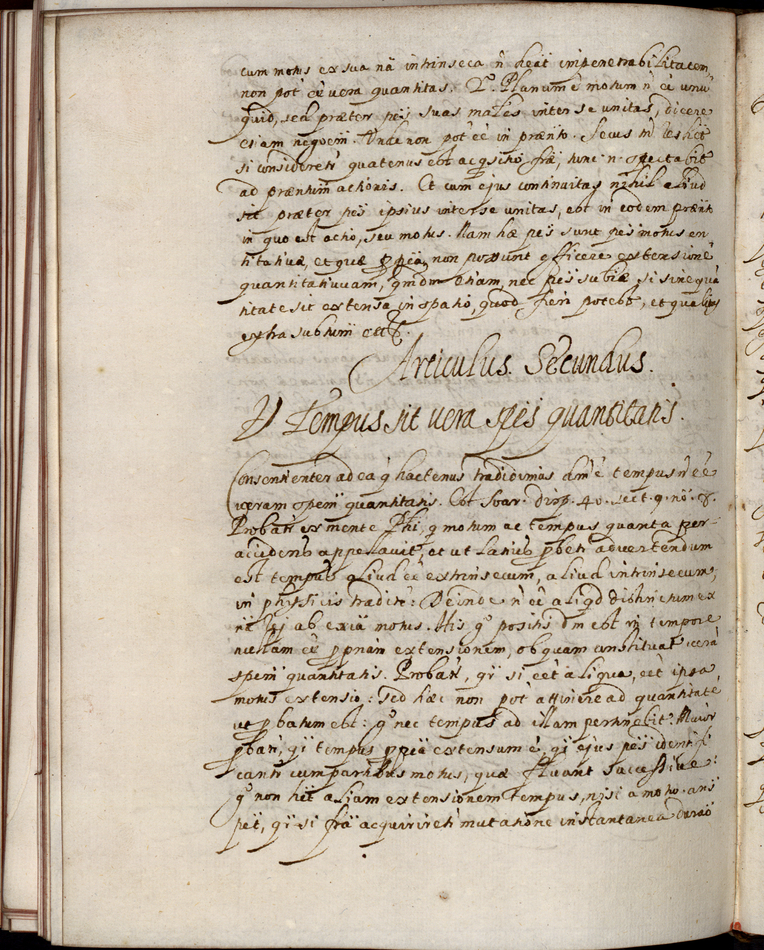 cum motus ex sua nã intrinseca ñ heãt inpenetrabilitatem,
non pot' eê vera quantitas. 2.º Planum ẽ motum ñ eê unũ
quid, sed præter pẽs suas inter se unitas, dicere
etiam Unde non pot' eê in prænto. Secus
si consideretr quatenus est acqsitio fræ, tunc ñ spectabit
ad prænt​um actionis. Et cum ejus continuitas nihil aliud
sit præter ipsius inter se unitas, est in eodem prænto
in quo est actio, seu motus. Nam hæ pẽs sunt pẽs motus en
titativæ, et quæ non possunt efficere extensionẽ
quantitativam, etiam, nec pẽs subiæ, si sine quã
titate sit extensa in spatio, quod fieri potest, et qualibus
extra
Articulus. Secundus.
V Tempus sit vera spẽs quantitatis.
Consentienter ad ea q̃ hactenus tradidimus dm̃ ẽ tempus ñ eê
veram spem̃ quantitatis. Est Soar. disp. 40. sect. 9. nº. 8.
Probatr ex mente Phi, q̃ motum ac tempus quanta per
accidens appellavit, et ut latius pbetr advertendum
est tempus aliud eê extrinsecum, aliud intrinsecum,
in phisicis traditr: Deinde ñ eê aliqd distinctum ex
nã rei ab exiã motus. His gº positis dm̃ est in tempore
nullam eê ppriam extensionem, ob quam constituat verã
spem̃ quantitatis. Probatr, qĩ si eêt aliqua, eêt ipsa
motus extensio: sed hæc non pot' attinere ad quantitatẽ
ut pbatum est: gº nec tempus ad illam pertinebit. Maior
pbatr, qĩ tempus extensum ẽ, qĩ ejus pẽs identifi
cantr cum partibus motus, quæ fluant successive:
gº non het aliam extensionem tempus, nisi a motu. ans
pet, qĩ si frã acquireretr mutatione instantanea duraõ